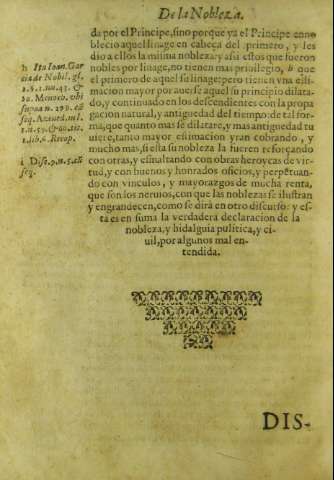 De la Nobleza.
da por el Principe, sino porque ya el Principe enno
blecio aquel linage en cabeça del primero, y les
dio a ellos la misma nobleza: y assi estos que fueron
nobles por linage, no tienen mas priuilegio, h que
el primero de aquel su linage: pero tienen vna esti-
macion mayor por auerse aquel su principio dilata-
do, y continuado en los descendientes con la propa
gacion natural, y antiguedad del tiempo: de tal for-
ma, que quanto mas se dilatare, y mas antiguedad tu
uiere, tanto mayor estimacion yran cobrando, y
mucho mas, si esta su nobleza la fueren reforçando
con otras, y esmaltando con obras heroycas de vir-
tud, y con buenos y honrados oficios, y perpetuan-
do con vinculos, y mayorazgos de mucha renta,
que son los neruios, con que las noblezas se ilustran
y engrandecen, como se dirà en otro discurso: y es-
ta es en suma la verdadera declaracion de la
nobleza, y hidalguia politica, y ci-
uil, por algunos mal en-
tendida.
h Ita Ioan. Gar
cia de Nobil. gl.
&
i
DIS-